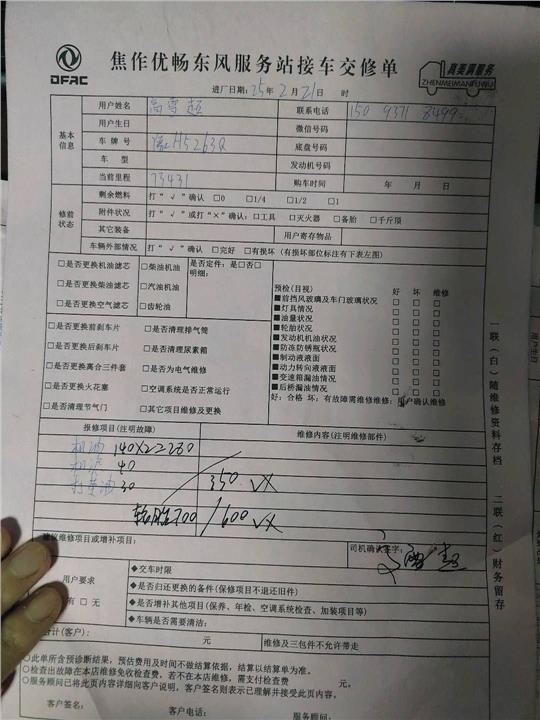 DFAC
焦作优畅东风服务站接车交修单
真美满服务
ZHENMEIMANFUWU
进厂日期：25年2月21日 时
基本信息
用户姓名 联系电话 150 9371 8499
用户生日 微信号码
车牌号 豫H5263Q 底盘号码
车型 发动机号码
当前里程 73431 购车时间 年 月 日
修前状态
剩余燃料 打“√”确认 □0 □1/4 □1/2 □1
附件状况 打“√”或打“×”确认：□工具 □灭火器 □备胎 □千斤顶
其它装备 用户寄存物品
车辆外部情况 打“√”确认 □完好 □有损坏（有损坏部位标注有下表左图）
□是否更换机油滤芯 □柴油机油 是否定件：是□否□
□是否更换柴油滤芯 □汽油机油 明细：
□是否更换空气滤芯 □齿轮油
□是否更换前刹车片 □是否清理排气筒
□是否更换后刹车片 □是否清理尿素箱
□是否更换离合三件套 □是否为电气维修
□是否更换火花塞 □空调系统是否正常运行
□是否清理节气门 □其它项目维修及更换
预检（目视） 好 坏 维修
■前挡风玻璃及车门玻璃状况 □ □ □
■灯具情况 □ □ □
■油量状况 □ □ □
■轮胎状况 □ □ □
■发动机机油状况 □ □ □
■防冻防锈瓶状况 □ □ □
■制动液液面 □ □ □
■动力转向液液面 □ □ □
■变速箱漏油情况 □ □ □
■后桥漏油情况 □ □ □
好：合格 坏：有故障需维修维修：用户确认维修
报修项目（注明故障） 维修内容（注明维修部件）
机油 140X2=280
机滤 40
打黄油 30 350 VX
轮胎700 1600 VX
建议维修项目或增补项目： 司机确认签字：
用户要求
有 □ 无
◆交车时限
◆是否归还更换的备件（保修项目不退还旧件）
◆是否增补其他项目（保养、年检、空调系统检查、加装项目等）
◆车辆是否需要清洁：
合计（客户）： 元 维修及三包件不允许带走
○此单所含预诊断结果，预估费用及时间不做结算依据，结算以结算单为准。
○检查出故障在本店维修免收检查费，若不在本店维修，需支付检查费 元。
○服务顾问已将此页内容详细向客户说明，客户签名则表示已理解并接受此页内容。
客户签名： 客户电话： 服务顾问：
一联（白）随维修资料存档
二联（红）财务留存